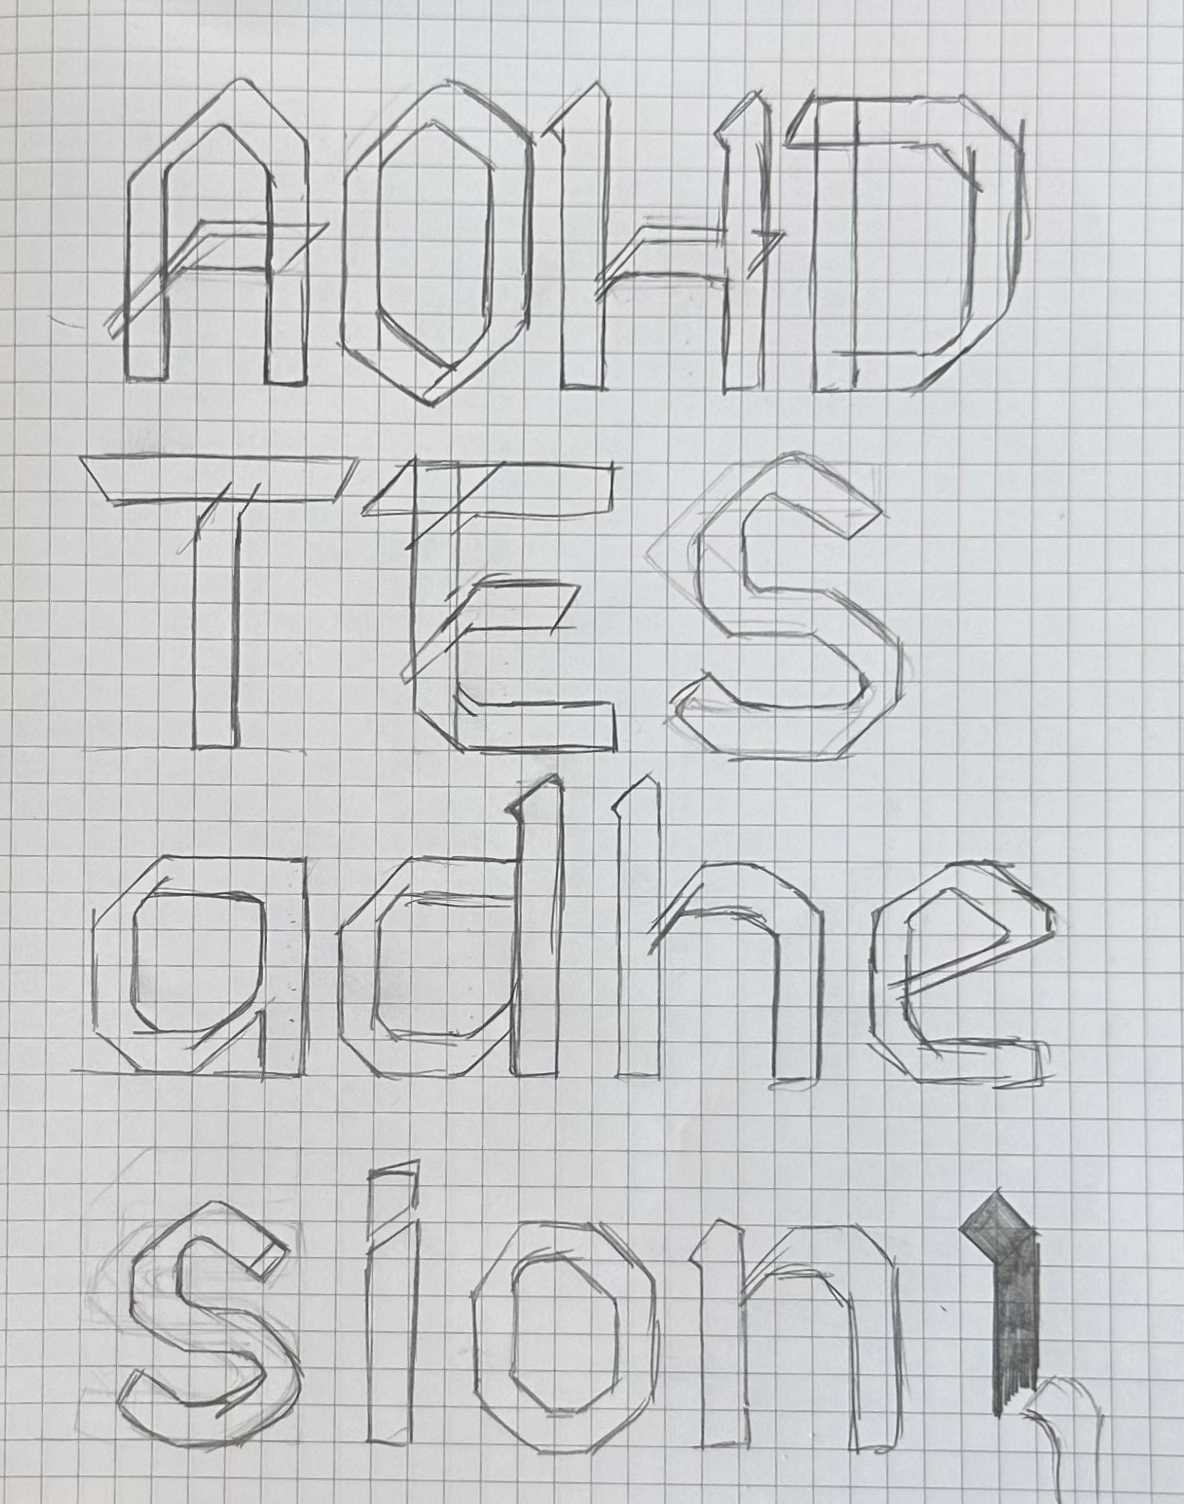 AOHD
TES
adhe
sion